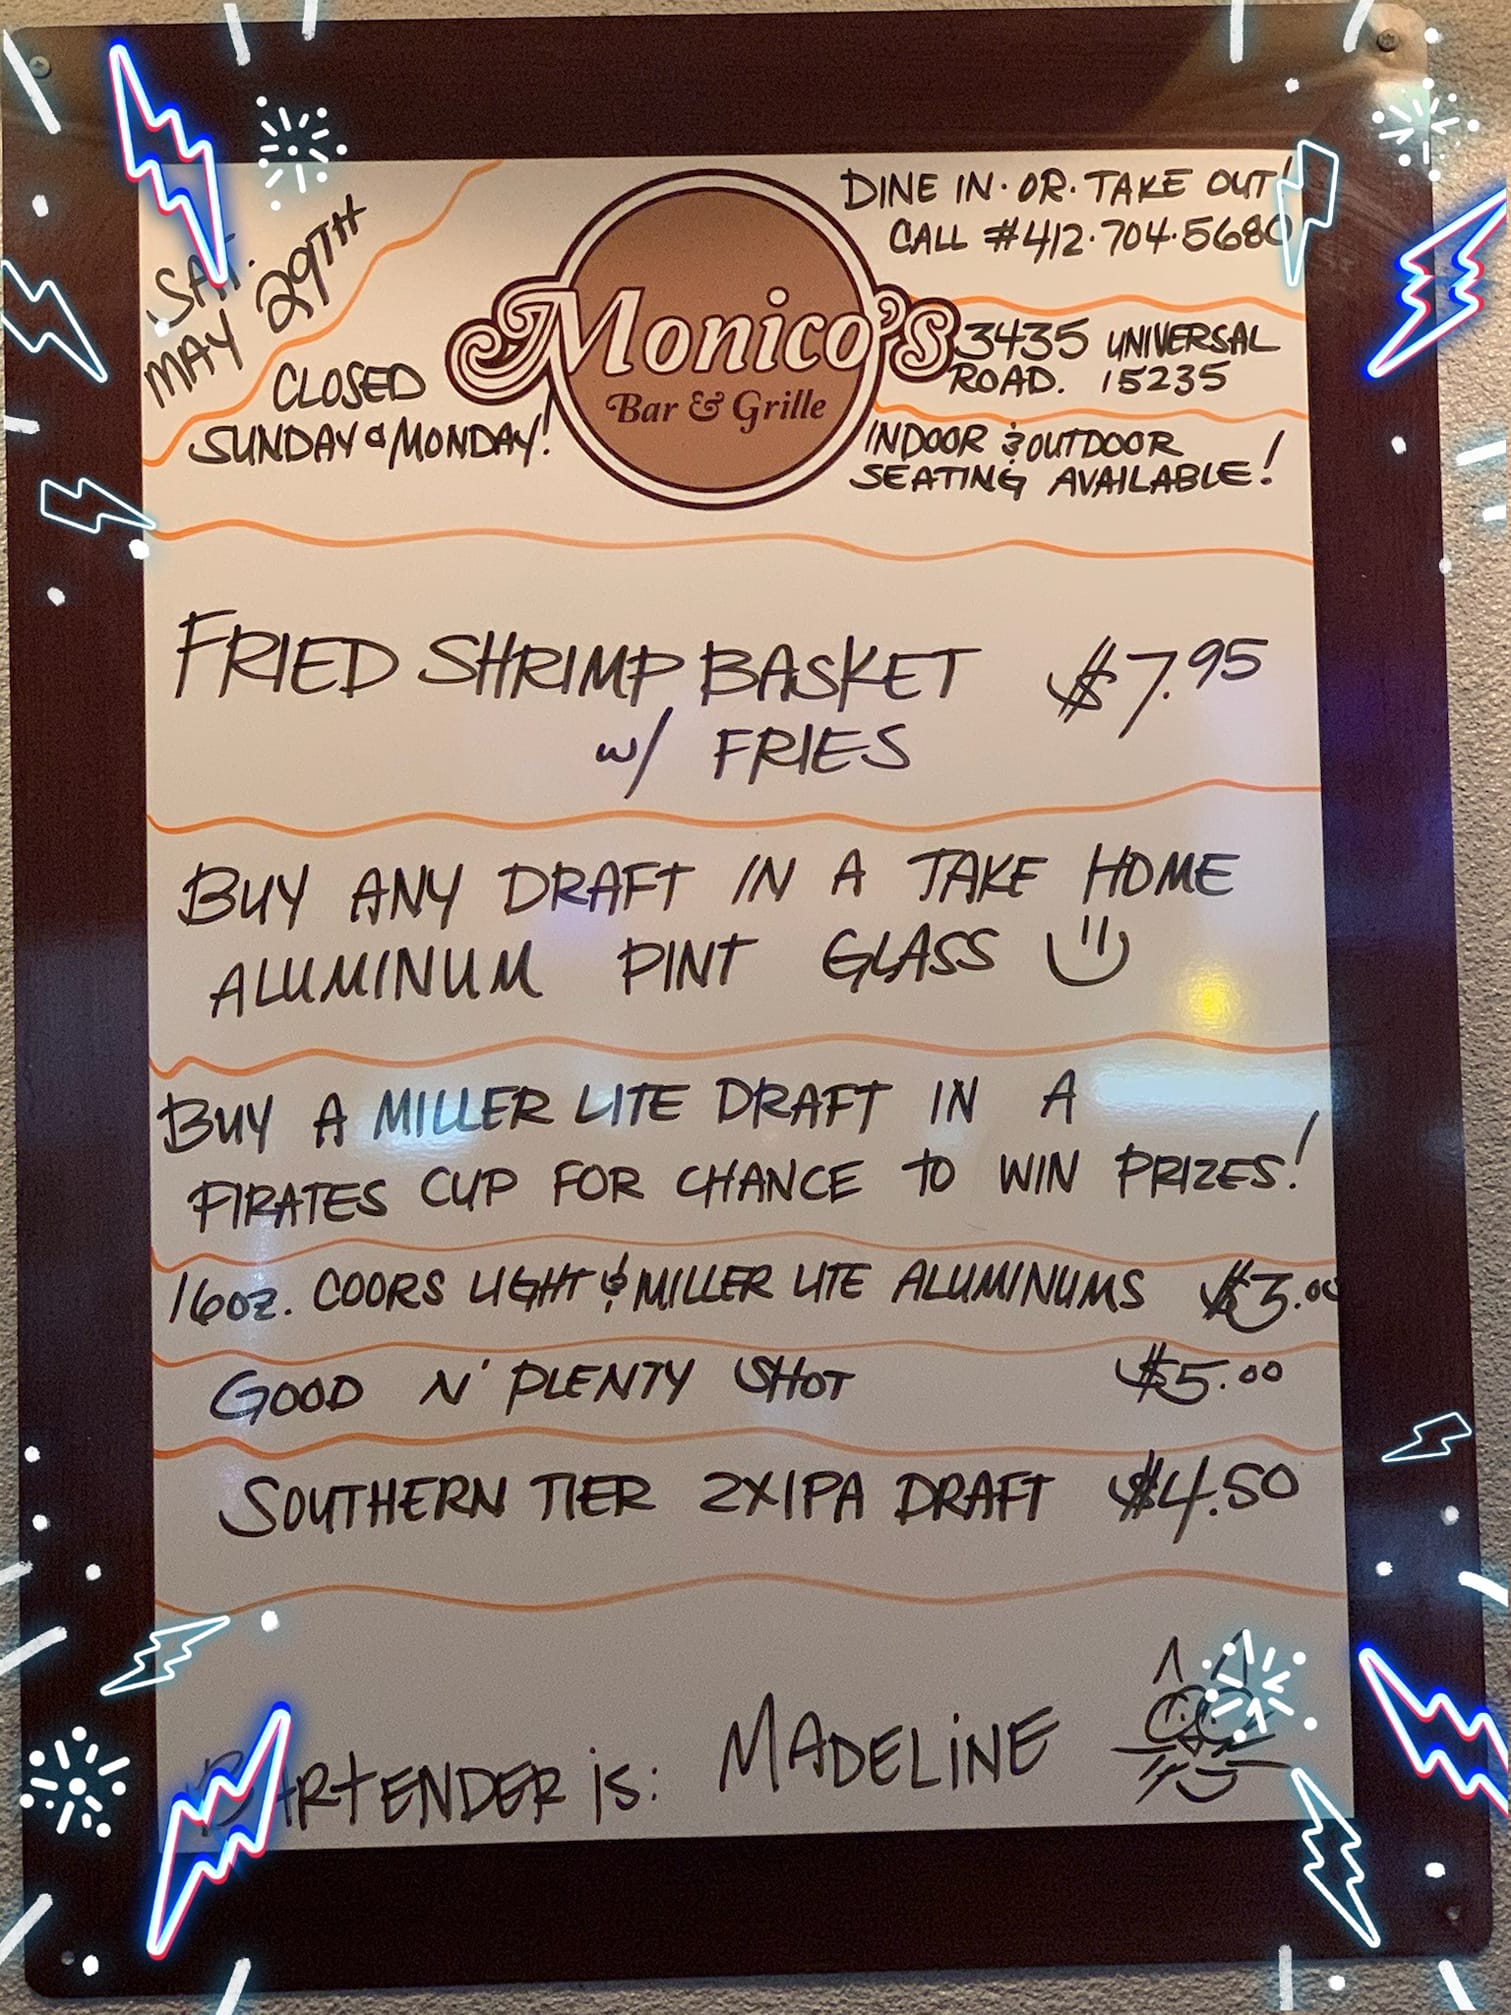 SAT.
MAY 29TH
CLOSED
SUNDAY & MONDAY!
Monico's
Bar & Grille
DINE IN · OR · TAKE OUT!
CALL #412·704·5680
3435 UNIVERSAL
ROAD. 15235
INDOOR & OUTDOOR
SEATING AVAILABLE!
FRIED SHRIMP BASKET $7.95
w/ FRIES
BUY ANY DRAFT IN A TAKE HOME
ALUMINUM PINT GLASS
BUY A MILLER LITE DRAFT IN A
PIRATES CUP FOR CHANCE TO WIN PRIZES!
16oz. COORS LIGHT & MILLER LITE ALUMINUMS $3.00
GOOD N' PLENTY SHOT $5.00
SOUTHERN TIER 2XIPA DRAFT $4.50
BARTENDER iS: MADELiNE